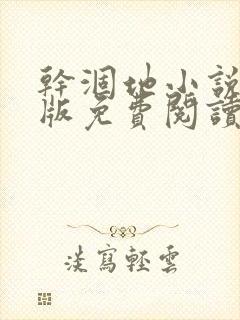 幹涸地小說
版免費閱讀
淡寫輕雲